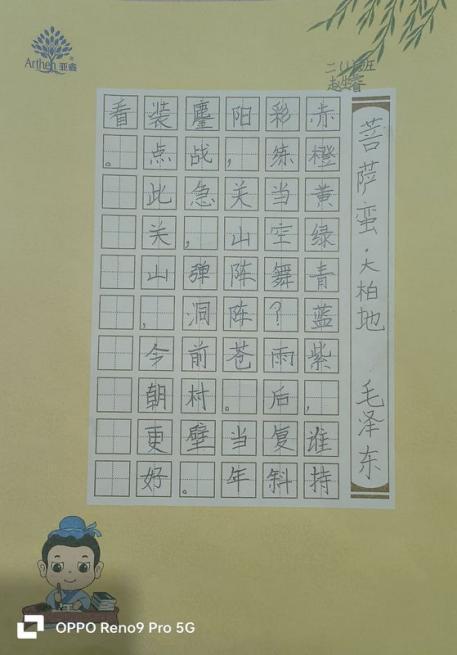 Arthen 亚睿
菩萨蛮·大柏地 毛泽东
赤橙黄绿青蓝紫,谁持
彩练当空舞?雨后复斜
阳,关山阵阵苍。当年
鏖战急,弹洞前村壁。
装点此关山,今朝更好
看。
OPPO Reno9 Pro 5G